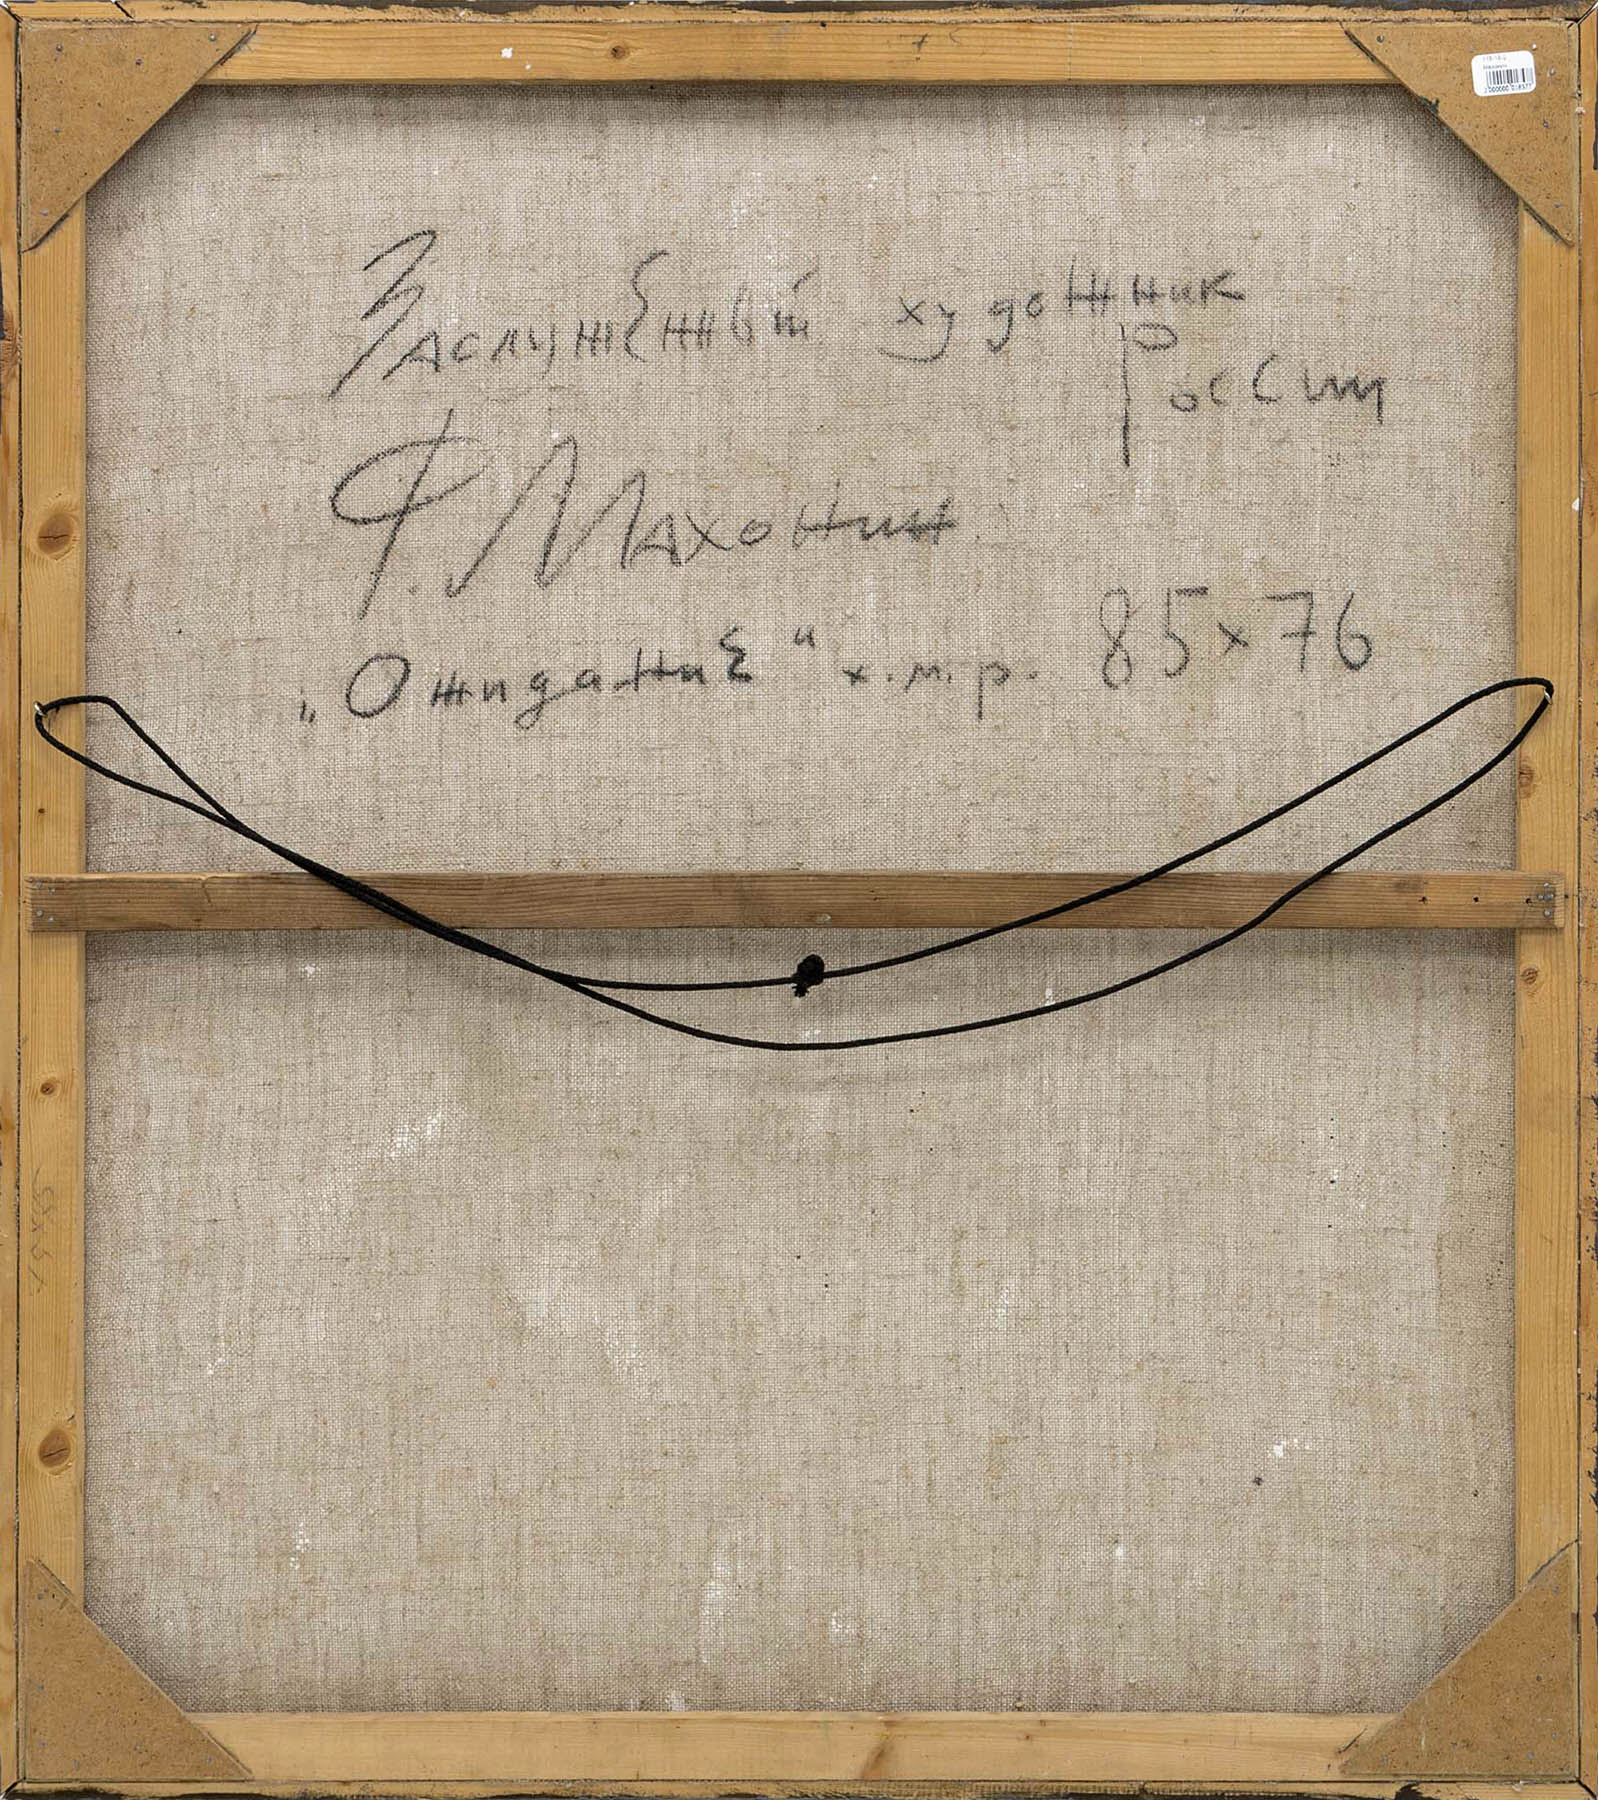 Заслуженный художник
России
Ф. Махонин
„Ожидание" х.м.р. 85×76